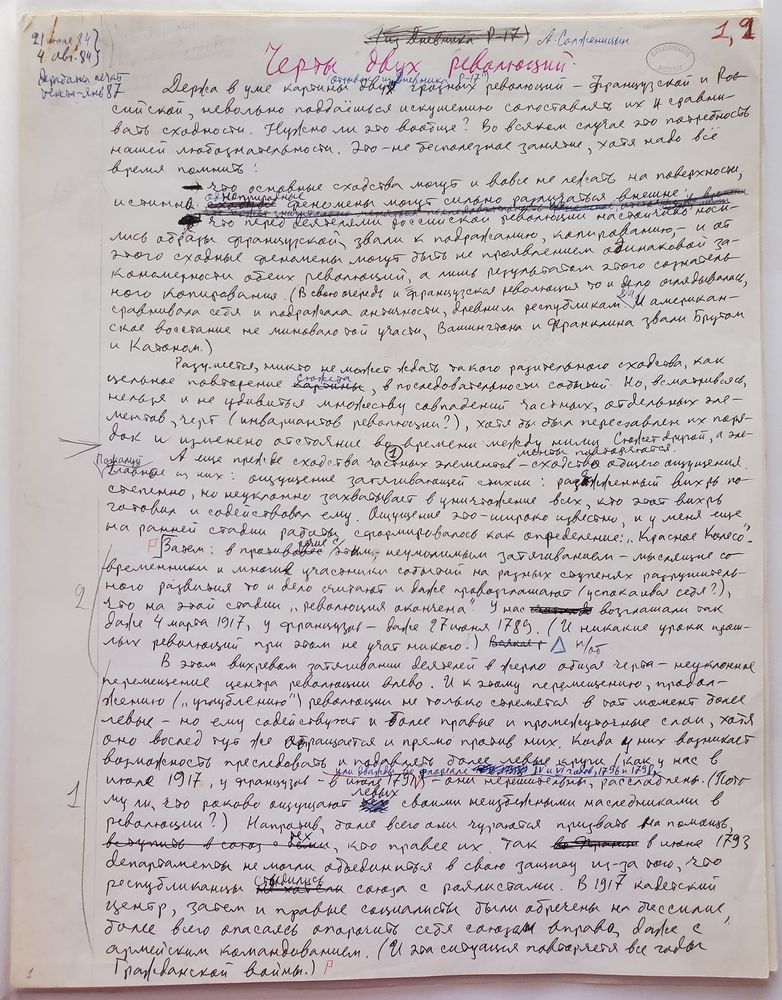 21 июля 84
4 авг. 84
(из дневника Р-17)
А. Солженицын
1,9
Держатка печат
текст-янв 87
Черты двух революций
отзывы из "Дневника Р-17"
Держа в уме картины двух грозных революций – Французской и Рос-
сийской, невольно поддаёшься искушению сопоставлять их и сравни-
вать сходности. Нужно ли это вообще? Во всяком случае это потребность
нашей любознательности. Это – не бесполезное занятие, хотя надо всё
время помнить:
– что основные сходства могут и вовсе не лежать на поверхности,
истинно одноприродные феномены могут сильно различаться внешне;
– что перед деятелями российской революции настойчиво носи-
лись образы французской, звали к подражанию, копированию, – и от
этого сходные феномены могут быть не проявлением одинаковой за-
кономерности обеих революций, а лишь результатом этого сознатель-
ного копирования. (В свою очередь и Французская революция то и дело оглядывалась,
сравнивала себя и подражала античности, древним республикам. Да и американ-
ское восстание не миновало той участи, Вашингтона и Франклина звали Брутом
и Катоном.)
Разумеется, никто не может ждать такого разительного сходства, как
цельное повторение сюжета, в последовательности событий. Но, всматриваясь,
нельзя и не удивиться множеству совпадений частных, отдельных эле-
ментов, черт (инвариантов революции?), хотя бы был переставлен их поря-
док и изменено отстояние во времени между ними. Сюжет другой, а эле-
менты повторяются.
А ещё прежде сходства частных элементов – сходство общего ощущения.
Пожалуй
главное из них: ощущение затягивающей стихии: разожжённый вихрь по-
степенно, но неуклонно захватывает в уничтожение всех, кто этот вихрь
готовил и содействовал ему. Ощущение это – широко известно, и у меня ещё
на ранней стадии работы сформировалось как определение: "Красное Колесо".
Затем: в противовес этим неумолимым затягиваниям – мыслящие со-
временники и многие участники событий на разных ступенях разрушитель-
ного развития то и дело считают и даже провозглашают (успокаивая себя?),
что на этой стадии "революция окончена". У нас возглашали так
даже 4 марта 1917, у французов – даже 27 июня 1789. (И никакие уроки прош-
лых революций при этом не учат никого.) н/от
В этом вихревом затягивании деятелей в жерло общая черта – неуклонное
перемещение центра революции влево. И к этому перемещению, продол-
жению ("углублению") революции не только стремятся в тот момент более
левые – но ему содействуют и более правые и промежуточные слои, хотя
оно вослед тут же обращается и прямо против них. Когда у них возникает
возможность преследовать и подавлять более левые круги, как у нас в
июле 1917, у французов – в июле 1791 – они нерешительны, расслаблены. (Пото-
му ли, что роково ощущают левых своими неизбежными наследниками в
революции?) Напротив, более всего они чураются призвать на помощь
тех, кто правее их. Так в июне 1793
департаменты не могли объединиться в свою защиту из-за того, что
республиканцы стыдились союза с роялистами. В 1917 кадетский
центр, затем и правые социалисты были обречены на бессилие,
более всего опасаясь опорочить себя союзом вправо, даже с
армейским командованием. (И эта ситуация повторяется все годы
Гражданской войны.)
2
1
1